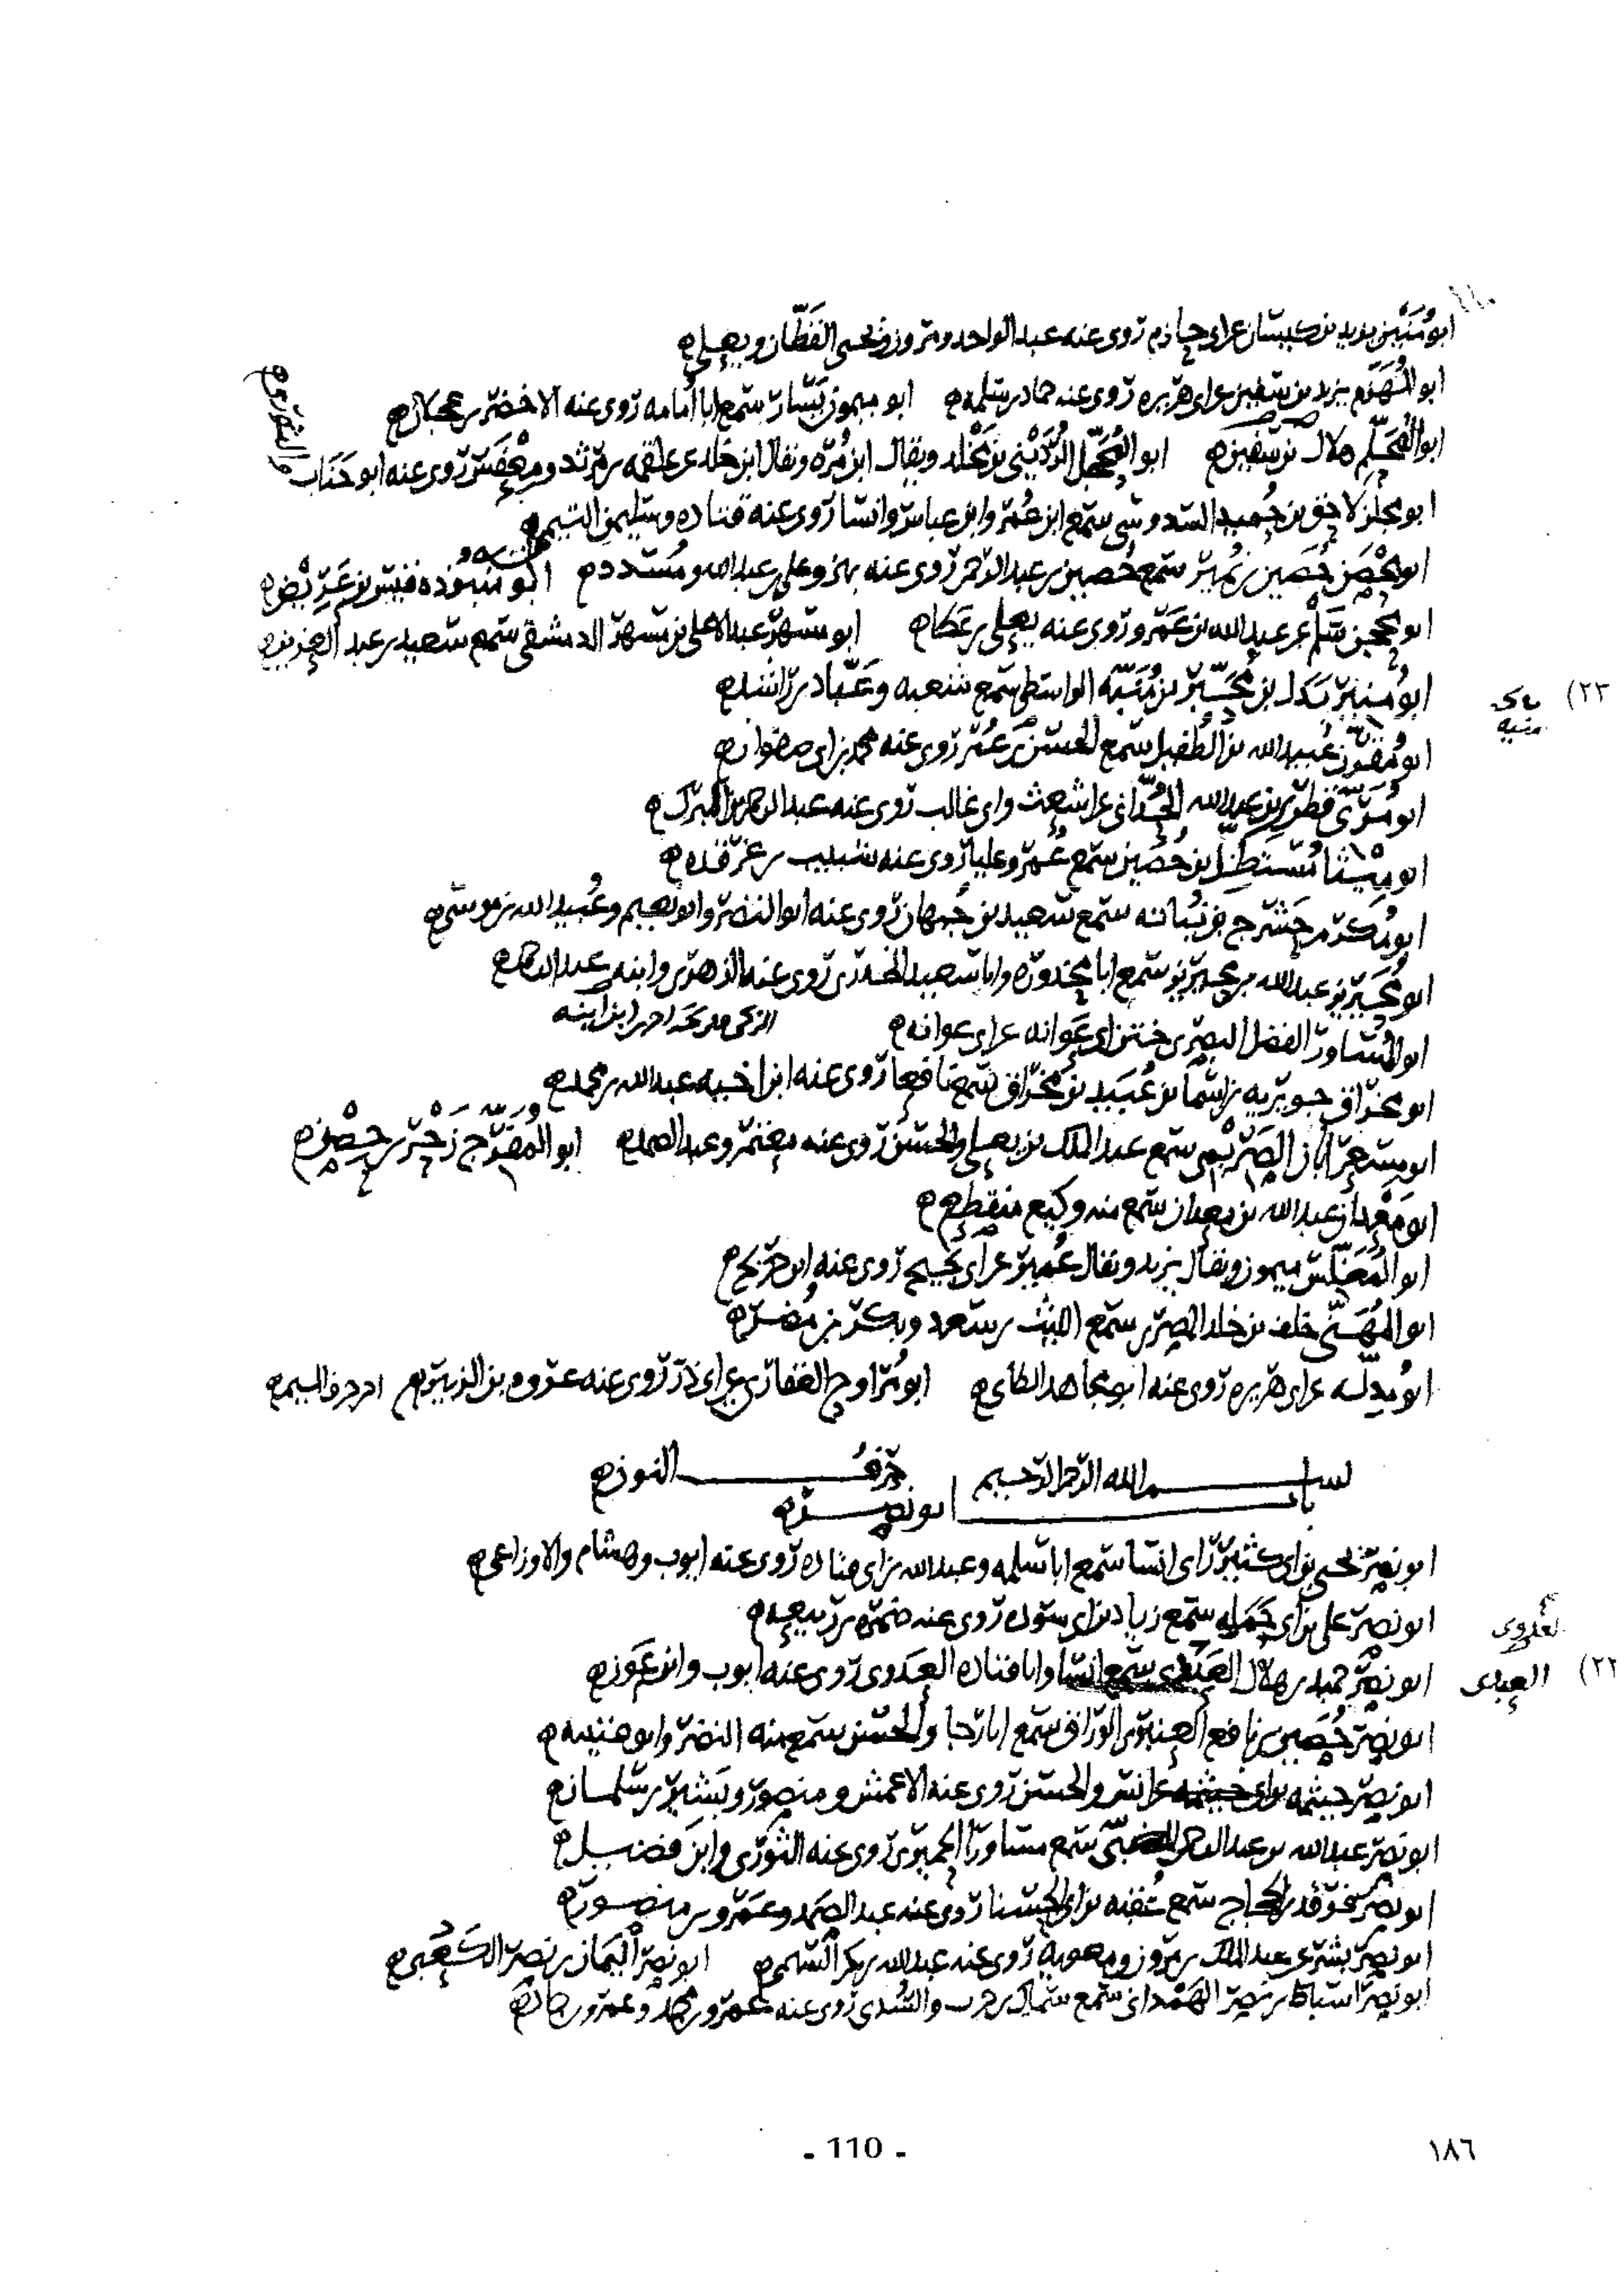 ابو مُنَيْن يزيد بن كيسان عن ابي حازم روى عنه عبد الواحد ومروان ويحيى القَطَّان ويعلى
ابو المُهَزِّم يزيد بن سفين عن ابي هريره روى عنه حماد بن سلمه ابو ميمون بَشَّار سمع ابا أمامه روى عنه الاخضر بن عجلان
ابو المُحَلِّم هلال بن سفين ابو المُحَجَّل الرُّدَيْنِي بن مَخْلد ويقال ابن مُرّه ويقال ابن خلد عن علقمه بن مرثد روى عنه ابو جَنَاب
والثوري
ابو مجلز لاحق بن حُميد السدوسي سمع ابن عُمر وابن عباس وانسا روى عنه قتاده وسليمن التيمي
ابو مِحْصَن حُصَين بن نُمير سمع حُصين بن عبد الرحمن روى عنه بهز وعلي بن عبد الله ومُسَدد
ابو سلم عن عبد الله بن عَمرو روى عنه يعلى بن عَطا ابو مسهر عبد الاعلى بن مسهر الدمشقي سمع سعيد بن عبد العزيز
ابو مُنير بَدَل بن مُحَبَّر بن مُنَبِّه الواسطي سمع شعبه وعَبَّاد بن راشد
منبه
(٢٣
عُبيد الله بن الطُفيل سمع الحسن بن عُمر روى عنه محمد بن ابي صفوان
ابو مُرَيّ قطري بن عبد الله الحُدّاني عن اشعث وابي غالب روى عنه عبد الرحمن بن المبرك
ابو مَيْثا مُستظِل بن حُصَين سمع عُمر وعليا روى عنه شبيب بن غرقده
ابو مُكرم حَشْرج بن نُباته سمع سعيد بن جُمهان روى عنه ابو النضر وابو نعيم وعُبيد الله بن موسى
ابو مُحَيريز عبد الله بن محيريز سمع ابا محذوره وابا سعيد الخدري روى عنه الزهري وابنه عبد الرحمن
ابو المُساور الفضل البصري ختن ابي عَوانه عن ابي عوانه
ابو مخراق جويريه بن اسما بن عُبيد بن مخراق سمع نافعا روى عنه ابن اخيه عبد الله بن محمد
ابو مِسعر ابان الصَرِيْمي سمع عبد الملك بن يعلى والحسن روى عنه معتمر وعبد الصمد ابو المُفَرِّج زَحْر بن حِصْن
ابو مَعْدان عبد الله بن معدان سمع منه وكيع منقطع
ابو المُغَلِّس ميمون ويقال يزيد ويقال عُمير عن ابي نجيح روى عنه ابن جريج
ابو المُهَنَّى خلف بن خلد المصري سمع الليث بن سعد وبكر بن مُضر
ابو مُدِلّه عن ابي هريره روى عنه ابو مجاهد الطائي ابو مُراوح الغفاري عن ابي ذر روى عنه عروه بن الزبير اخر حرف الميم
بسم الله الرحمن الرحيم حرف النون
باب ابو نصر
ابو نصر يحيى بن ابي كثير راى انسا سمع ابا سلمه وعبد الله بن ابي قتاده روى عنه ايوب وهشام والاوزاعي
ابو نصر علي بن ابي حَمَله سمع زياد بن ابي سوده روى عنه ضمره بن ربيعه
ابو نصر حميد بن هلال سمع انسا وابا قتاده العَدَوي روى عنه ايوب وابن عَون
العدوي
(٢٢
ابو نصر حُصَين بن نافع العنبري الوراق سمع ابا رجا والحسن سمع منه النضر وابو قتيبه
ابو نصر خيثمه بن ابي خيثمه عن انس والحسن روى عنه الاعمش ومنصور وبَشير بن سلمان
ابو نصر عبد الله بن عبد الرحمن الضبّي سمع مساورا الحميري روى عنه الثوري وابن فضيل
ابو نصر بن الحجاج سمع عُقبه بن ابي الحسنا روى عنه عبد الصمد وعَمرو بن منصور
ابو نصر بشر بن عبد الملك مروان بن معويه روى عنه عبد الله بن بكر السهمي ابو نصر اليمان بن نصر الكَعْبي
ابو نصر اسباط بن نصر الهَمْداني سمع سماك بن حرب والسُدي روى عنه عَمرو بن محمد وعمرو بن حماد
- 110 -
١٨٦